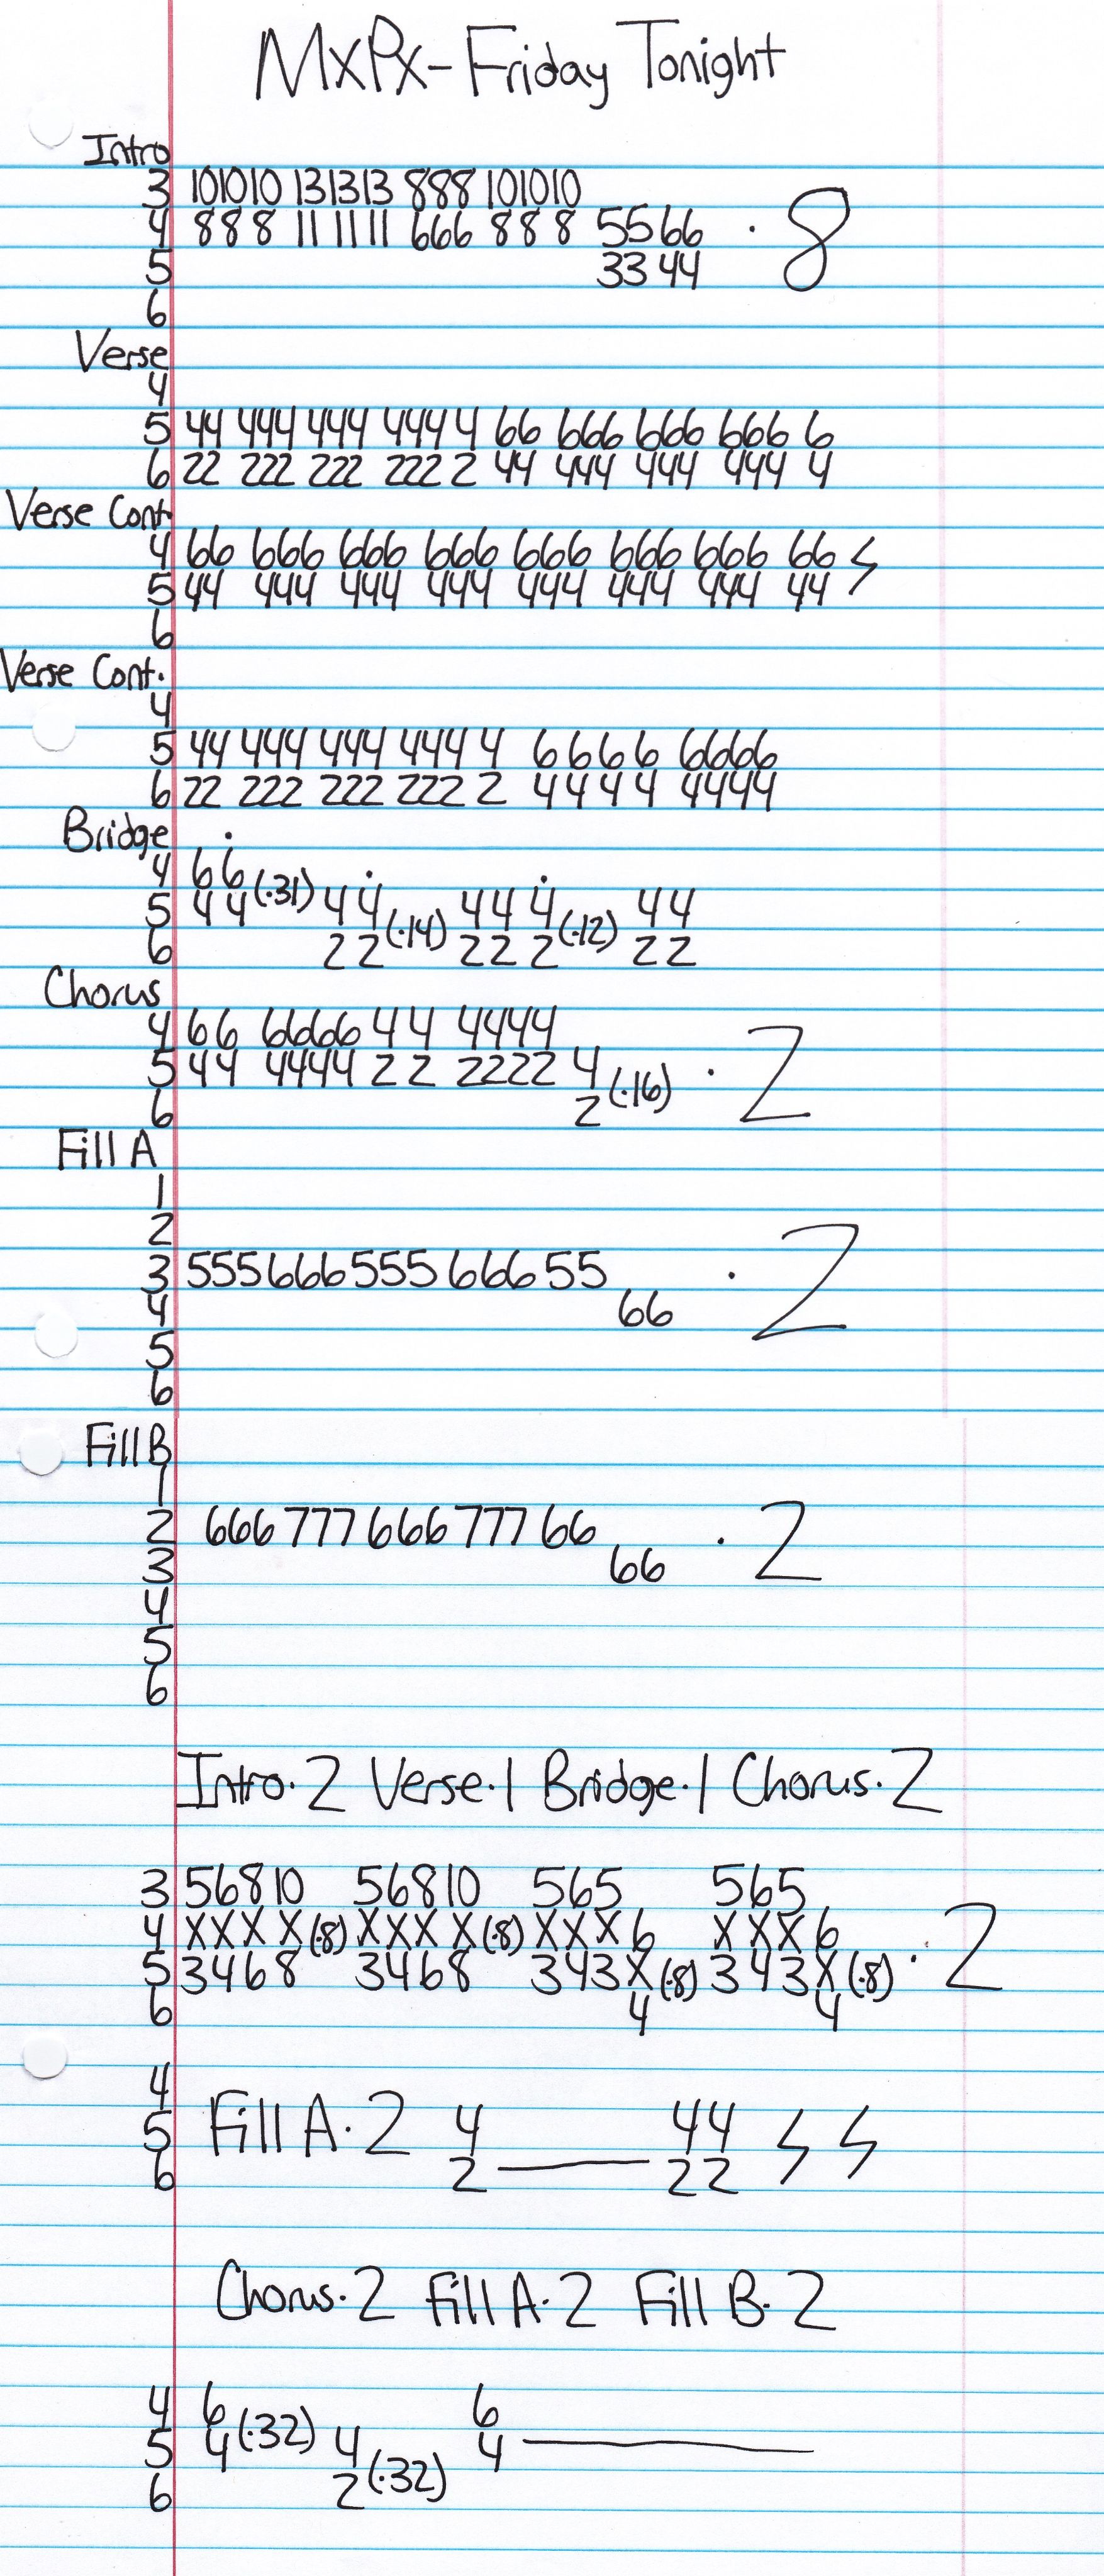 MxPx-Friday Tonight
Intro
3 101010 131313 888 101010
4 8 8 8 11 11 11 666 8 8 8 5566 · 8
5 33 44
6
Verse
4
5 44 444 444 4444 4 66 666 666 666 6
6 22 222 222 222 2 44 444 444 444 4
Verse Cont.
4 66 666 666 666 666 666 666 66
5 44 444 444 444 444 444 444 44
6
Verse Cont.
4
5 44 444 444 4444 4 6 6 6 6 6666
6 22 222 222 222 2 4 4 4 4 4444
Bridge
4 6 6
5 4 4 (·31) 4 4 44 4 44
6 2 2 (·14) 22 2 (·12) 22
Chorus
4 6 6 6666 4 4 4444
5 4 4 4444 2 2 2222 4 · 2
6 2 (·16)
Fill A
1
2
3 555666555 666 55 · 2
4 66
5
6
Fill B
1
2 666 777 666 777 66 · 2
3 66
4
5
6
Intro·2 Verse·1 Bridge·1 Chorus·2
3 56810 56810 565 565
4 XXX X (·8) XXX X (·8) XXX6 XXX6 · 2
5 3468 3468 343X (·8) 343X (·8)
6 4 4
4
5 Fill A·2 4 44
6 2 22
Chorus·2 Fill A·2 Fill B·2
4 6 6
5 4 (·32) 4 4
6 2 (·32)